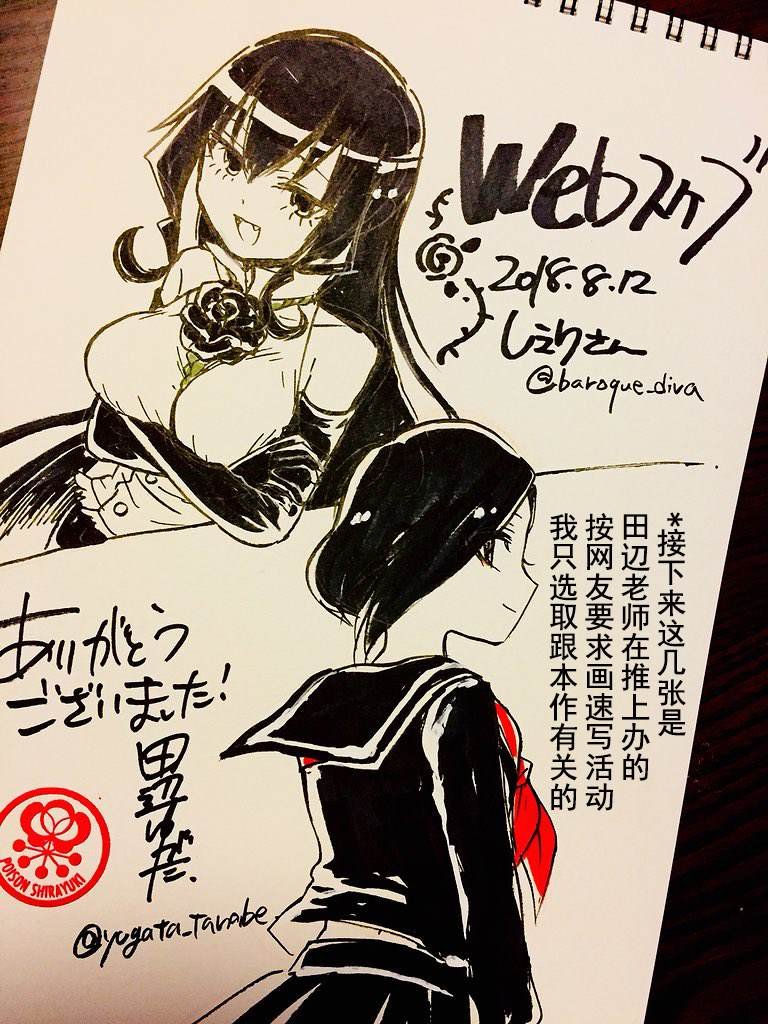 Webスケブ
2018.8.12
しえりさん
@baroque_diva
*接下来这几张是
田辺老师在推上办的
按网友要求画速写活动
我只选取跟本作有关的
ありがとう
ございました!
田辺ゆがた.
POISON SHIRAYUKI
@yugata_tanabe